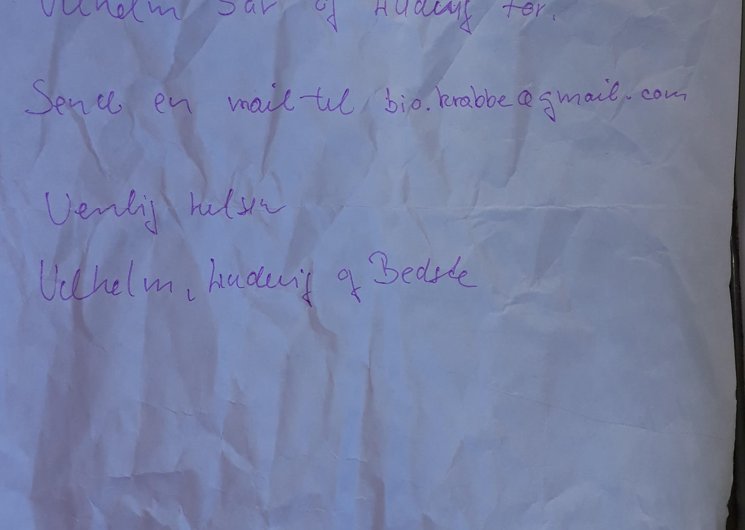 Vilhelm 5 år og Ludvig 7 år.
Send en mail til bio.krabbe@gmail.com
Venlig hilsen
Vilhelm, Ludvig og Bedste